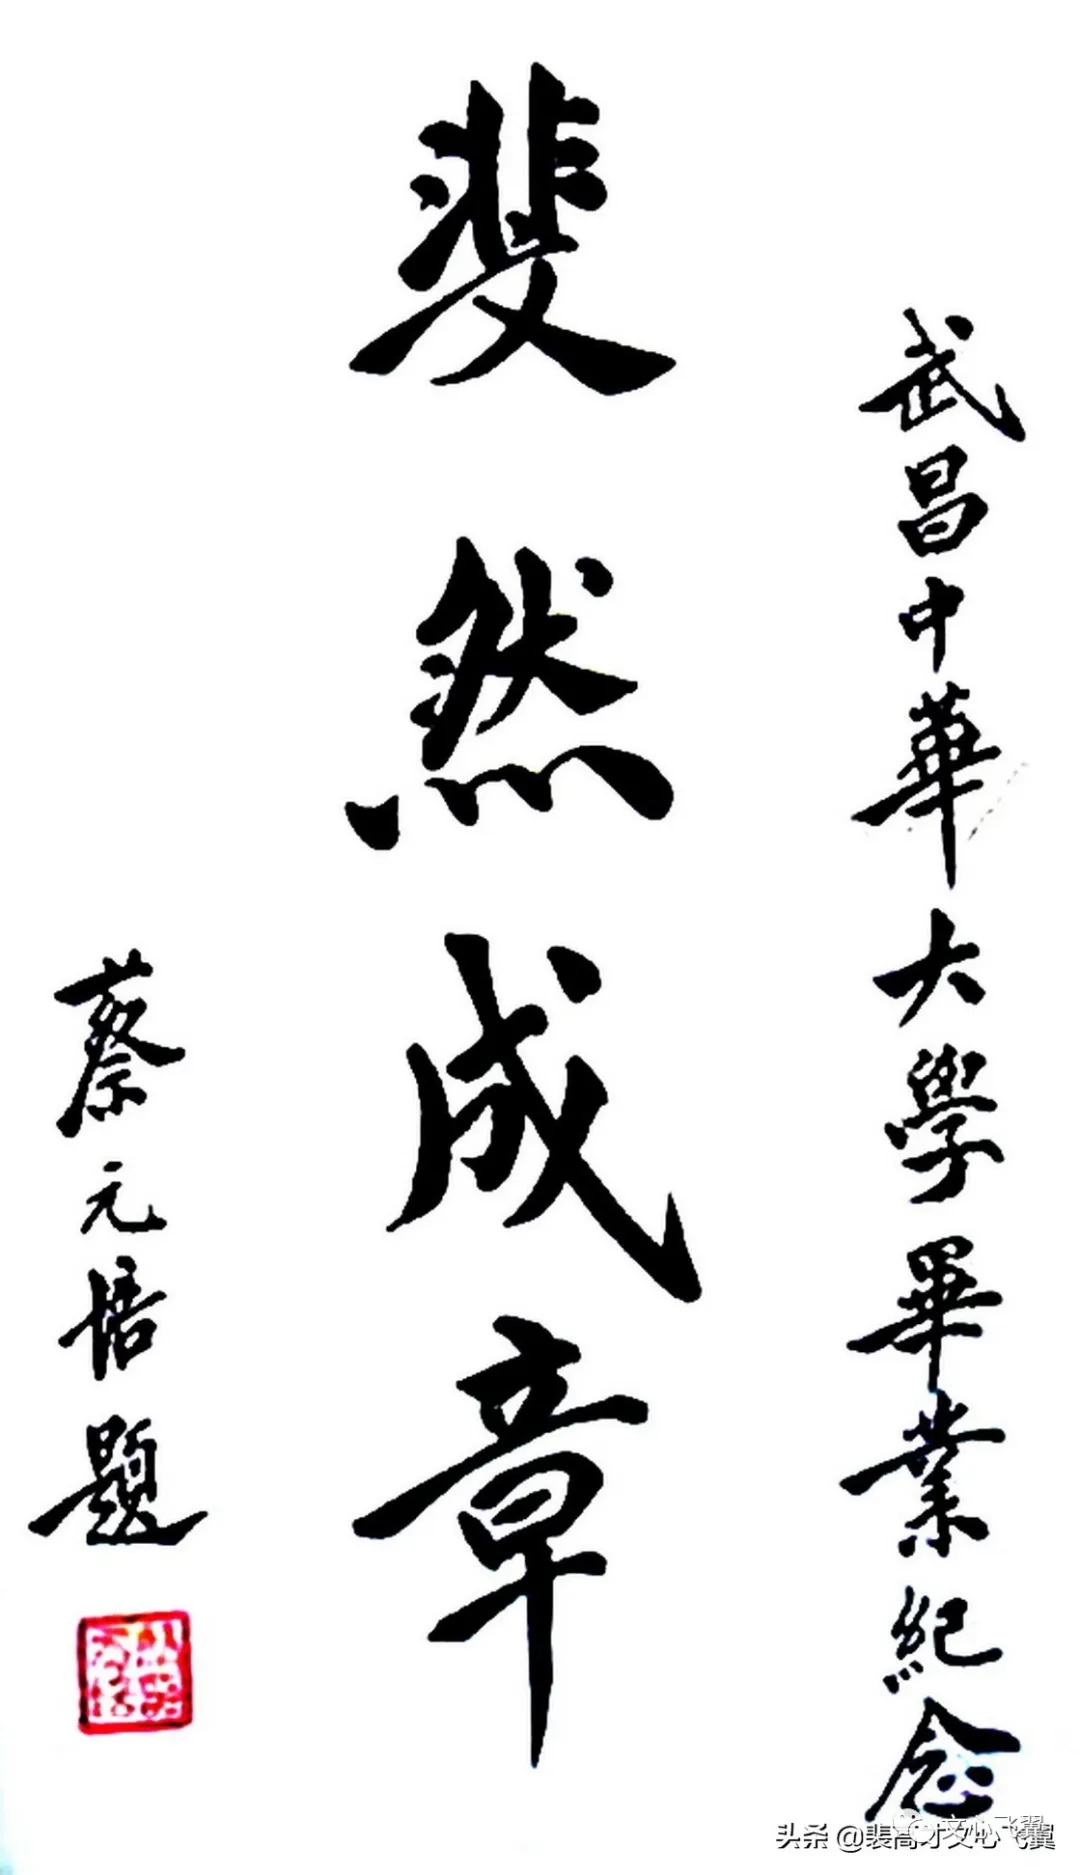 武昌中華大學畢業紀念
斐然成章
蔡元培題
头条 @裴高才文心飞翼
文心飞翼